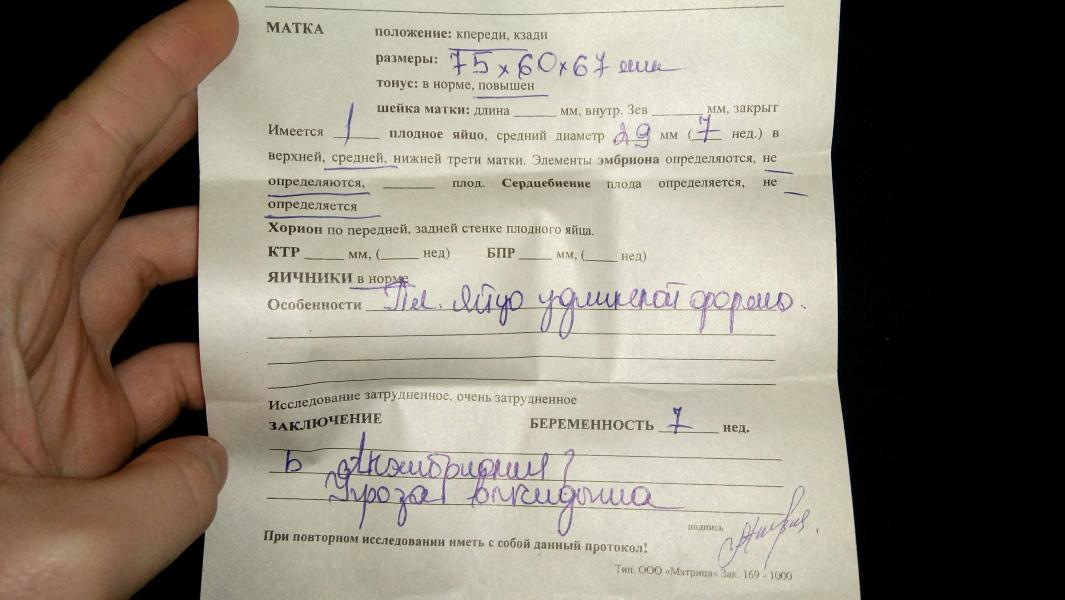 МАТКА положение: кпереди, кзади
размеры: 75 х 60 х 67 мм
тонус: в норме, повышен
шейка матки: длина ______ мм, внутр. Зев ______ мм, закрыт
Имеется 1 плодное яйцо, средний диаметр 29 мм (7 нед.) в
верхней, средней, нижней трети матки. Элементы эмбриона определяются, не
определяются, ______ плод. Сердцебиение плода определяется, не
определяется
Хорион по передней, задней стенке плодного яйца.
КТР _____ мм, (_____ нед) БПР ____ мм, (____ нед)
ЯИЧНИКИ в норме
Особенности Пл. яйцо удлиненой формы.
Исследование затрудненное, очень затрудненное
ЗАКЛЮЧЕНИЕ БЕРЕМЕННОСТЬ 7 нед.
Анэмбриония?
Угроза выкидыша
подпись
При повторном исследовании иметь с собой данный протокол!
Тип. ООО «Матрица» Зак. 169 - 1000